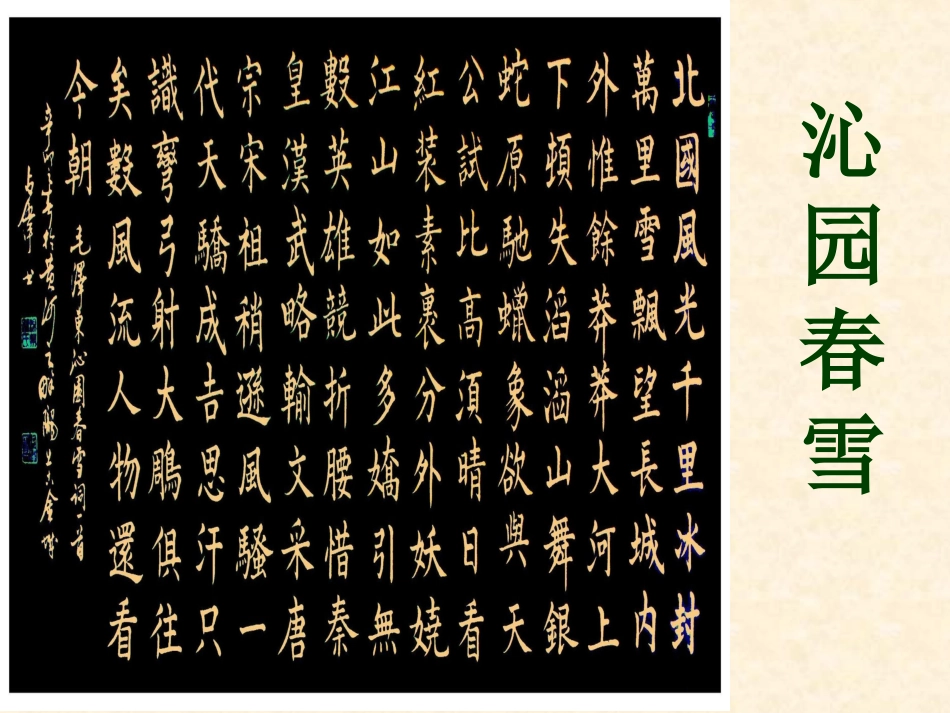 沁园春雪
北國風光千里冰封
萬里雪飄望長城内
外惟餘莽莽大河上
下頓失滔滔山舞銀
蛇原馳蠟象欲與天
公試比高須晴日看
紅装素裹分外妖嬈
江山如此多嬌引無
數英雄競折腰惜秦
皇漢武略輸文采唐
宗宋祖稍遜風騷一
代天驕成吉思汗只
識彎弓射大鵰俱往
矣數風流人物還看
今朝
毛澤東沁園春雪詞一首
辛卯春於黄河